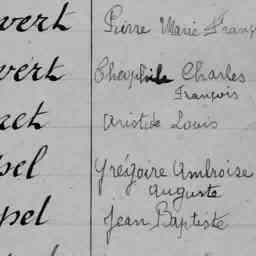 vert Pierre Marie Franç
vert Théophile Charles
François
net Aristide Louis
pel Grégoire Ambroise
Auguste
pel Jean Baptiste